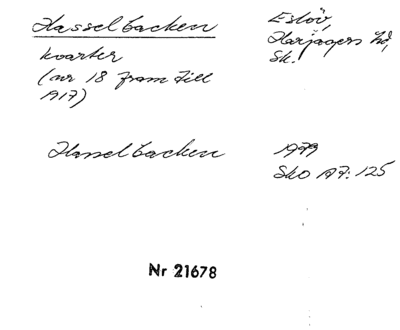 Hasselbacken
Eslöv,
Harjagers hd,
Sk.
kvarter
(nr 18 fram till
1917)
Hasselbacken
1979
Sko A7:125
Nr 21678